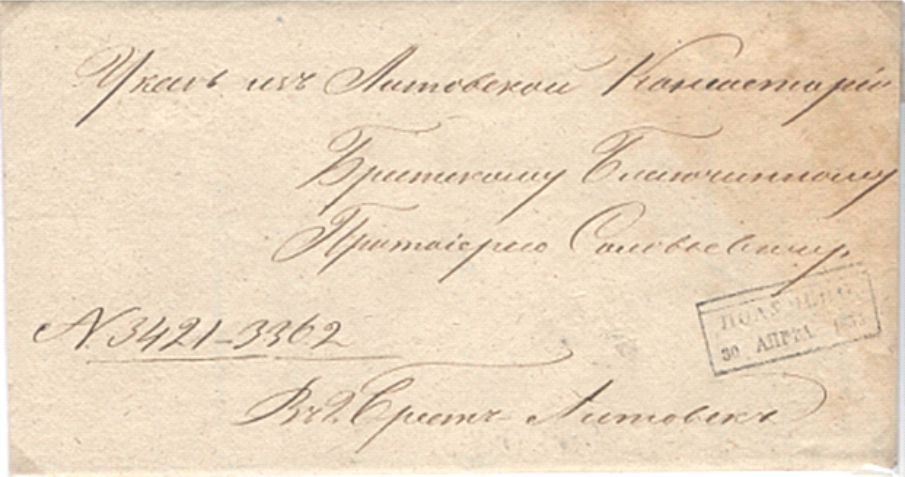 Указъ изъ Литовской Консисторіи
Брестскому Благочинному
Протоіерею Соловьевичу.
N. 3421–3362
ПОЛУЧЕНО
30 АПРѢЛ
Въ г. Брестъ-Литовскъ